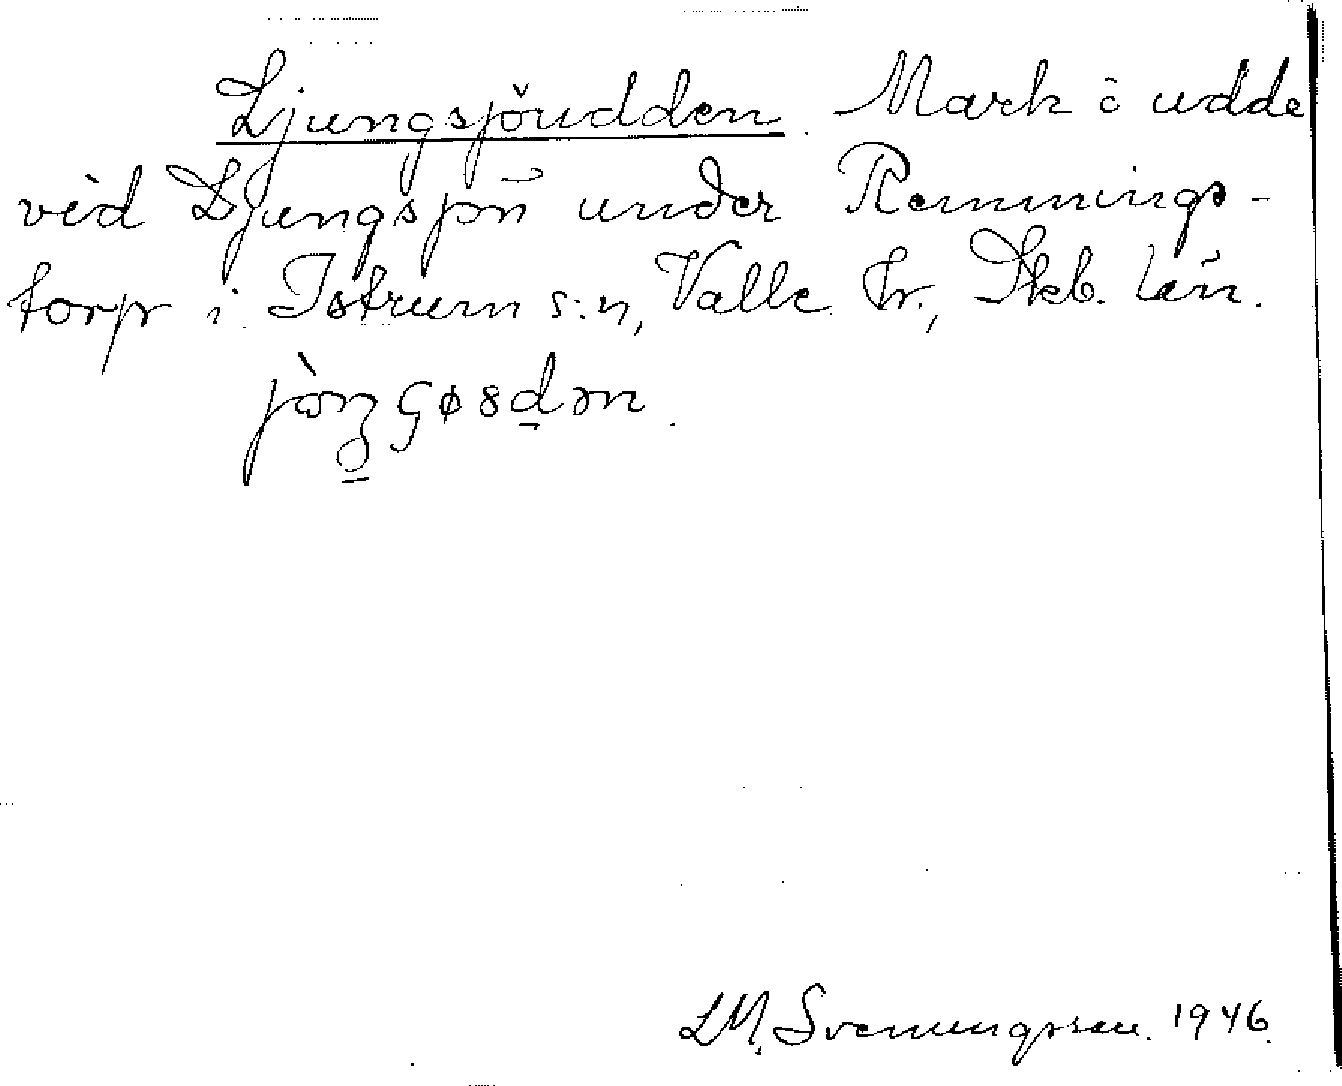 Ljungsjöudden. Mark å udde
vid Ljungsjön under Remmings-
torp i Istrum s:n, Valle hr., Skb. län.
LM. Svenungsson. 1946.